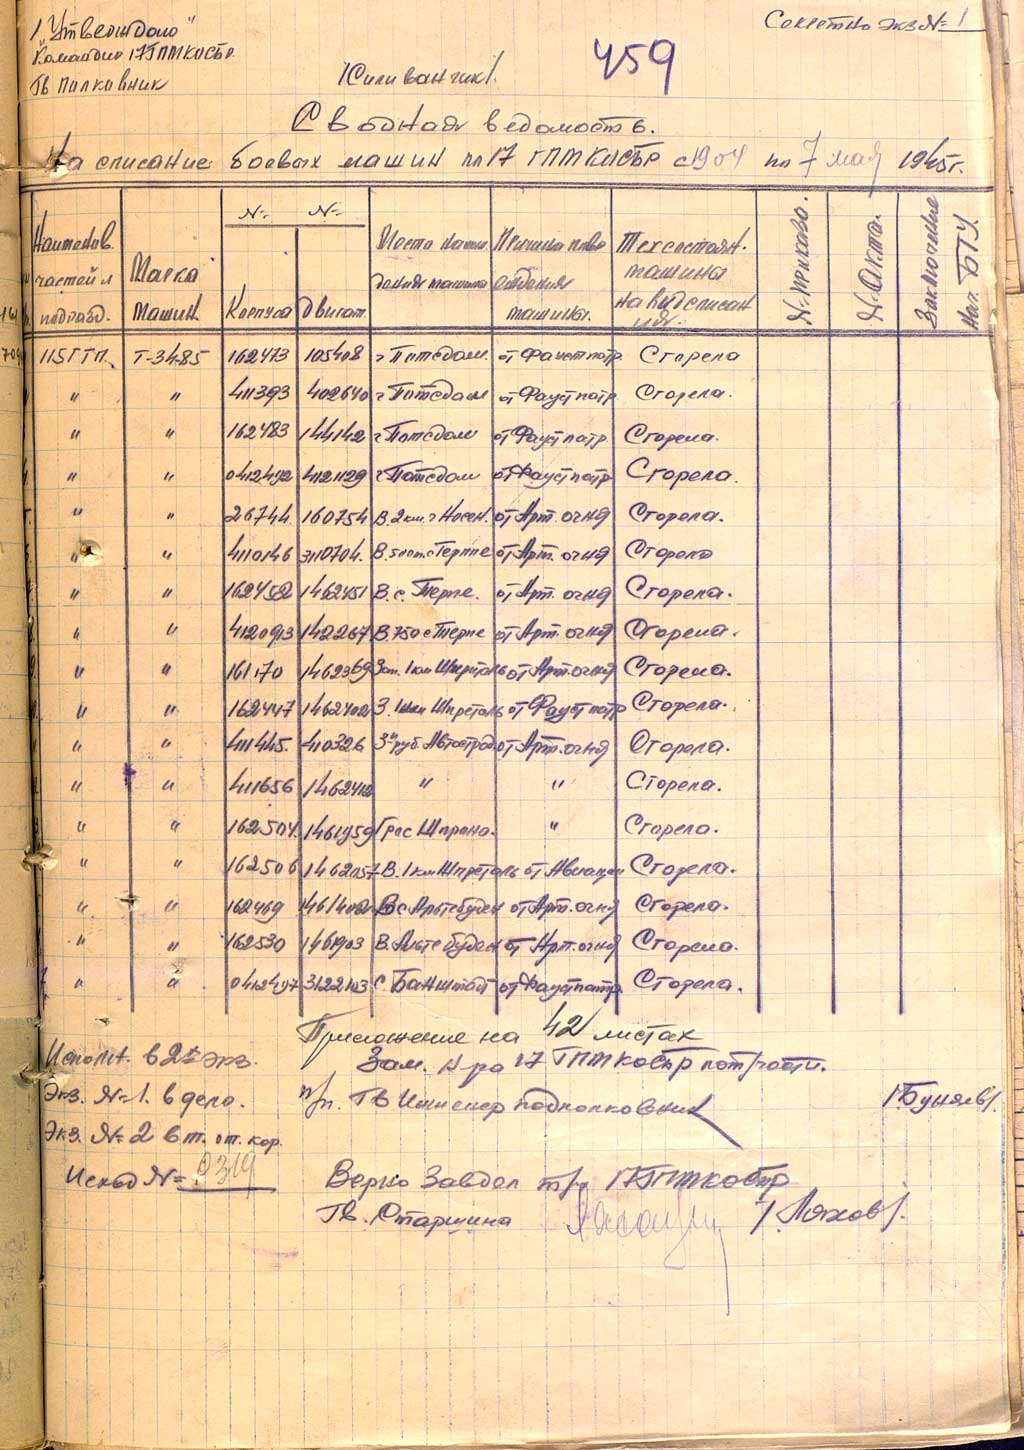 "Утверждаю"
Секретно экз № 1
Командир 17 ГПМКОСБР
Гв Полковник /Селиванчик/.
459
Сводная ведомость.
На списание боевых машин по 17 ГПМКОСБР с 19 04 по 7 мая 1945г.
Наименов. частей и подразд. Марка машин №= Корпуса №= Двигат. Место нахождения машины Причина повреждения машины. Тех состоян. машины на вид списания. №=приказа. №=Акта. Заключение Нач. БТУ.
115ГТП. Т-34-85 162473 105408 г Потсдам от Фаустпатр Сгорела
" " 411393 402640 г Потсдам от Фаустпатр Сгорела.
" " 162483 144142 г Потсдам от Фаустпатр. Сгорела.
" " 0412492 4121129 г Потсдам от Фаустпатр Сгорела.
" " 26744 160754 В. 2км. г от Арт. огня Сгорела.
" " 4110146 3110704. В. 500м. с Терпе от Арт. огня Сгорела
" " 162452 1462451 В. с. Терпе. от Арт. огня Сгорела.
" " 4120913 142267 В. 750 с Терпе от Арт. огня Сгорела.
" " 161170 1462369 Зап. 1 км Шпреталь от Арт. огня Сгорела.
" " 162447 1462402 З. 1км Шпреталь от Фаустпатр Сгорела.
" " 411445. 410326 Автострад. от Арт. огня Сгорела.
" " 411656 1462412 " " Сгорела.
" " 162504. 1461959 " Сгорела.
" " 162506 1462157 В. 1 км Шпреталь от Авиации Сгорела.
" " 162469 1461402 В с Альтебуден от Арт. огня Сгорела.
" " 162530 1461903 В. Альтебуден от Арт. огня Сгорела.
" " 0412497 3122103 с. от Фаустпатр. Сгорела.
Приложение на 42 листах
Исполн. в 2х экз. Зам. к-ра 17 ГПМКОСБР по тех/части.
Экз. №=1. в дело. п/п. Гв Инженер подполковник /Буняев/.
Экз. №=2 в т. от. кор.
Исход №= 0319 Верно Завдел т/ч 17ГПМКОСБР
Гв. Старшина /Ляхов/.